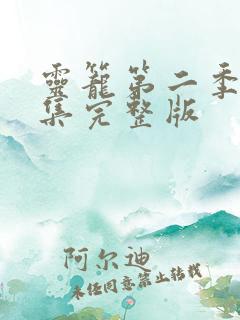 靈籠第二季
集完整版
阿尔迪
未经同意禁止转载